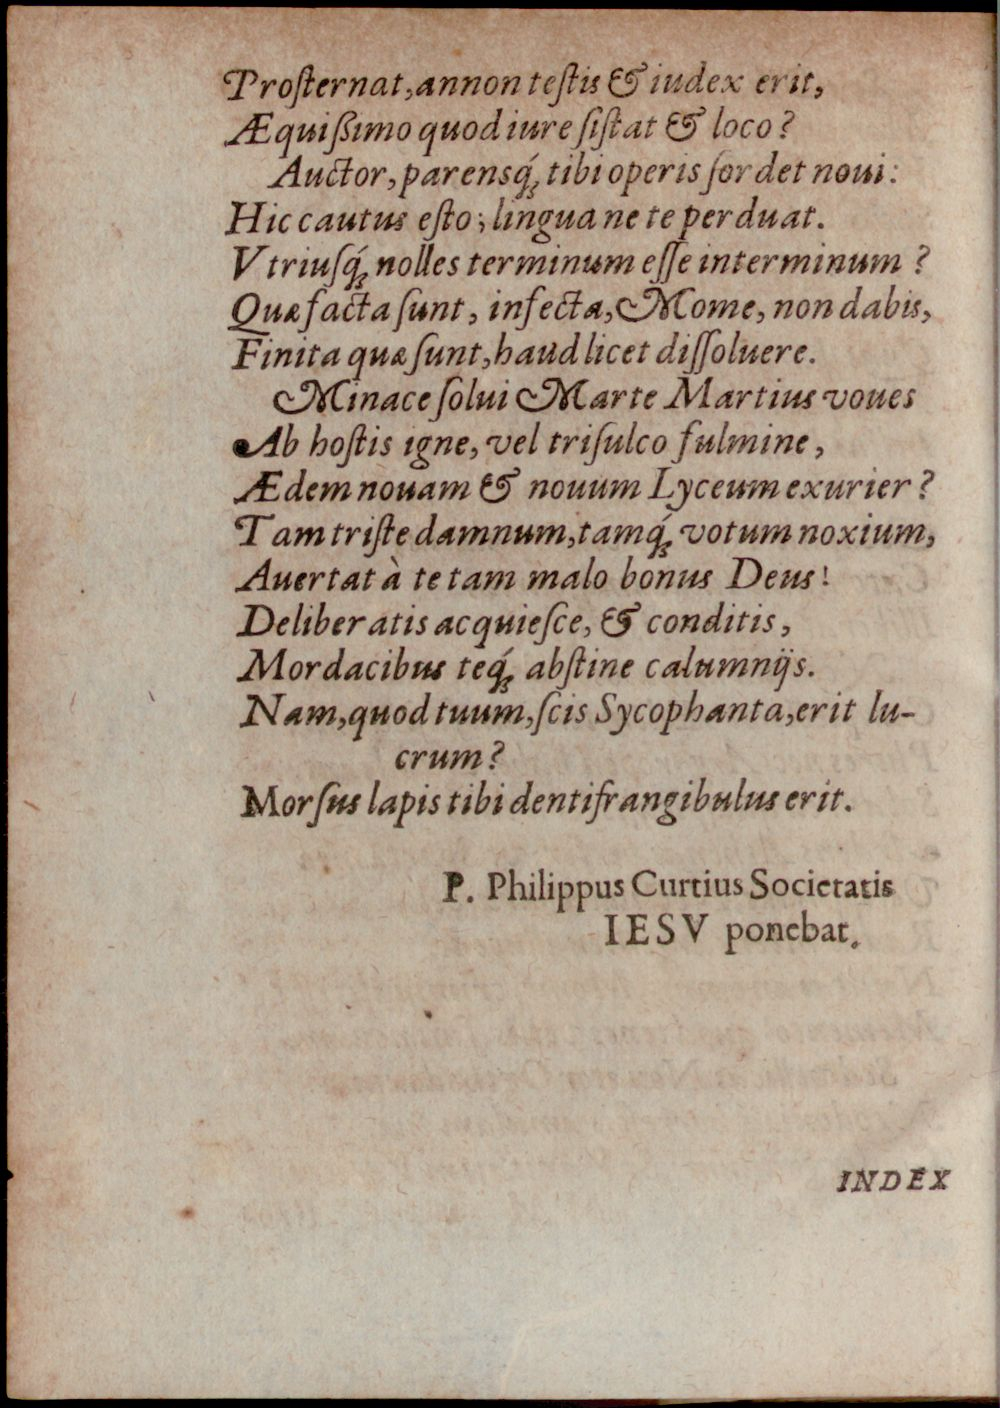 Proſternat, annon teſtis & iudex erit,
Æquiſsimo quod iure ſiſtat & loco?
Auctor, parensq́; tibi operis ſordet noui:
Hic cautus eſto; lingua ne te perduat.
Vtriuſq́; nolles terminum eſſe interminum?
Quæ facta ſunt, infecta, Mome, non dabis,
Finita quæ ſunt, haud licet diſſoluere.
Minace ſolui Marte Martius voues
Ab hoſtis igne, vel triſulco fulmine,
Ædem nouam & nouum Lyceum exurier?
Tam triſte damnum, tamq́; votum noxium,
Auertat à te tam malo bonus Deus!
Deliberatis acquieſce, & conditis,
Mordacibus teq́; abſtine calumnijs.
Nam, quod tuum, ſcis Sycophanta, erit lu-
crum?
Morſus lapis tibi dentifrangibulus erit.
P. Philippus Curtius Societatis
IESV ponebat.
INDEX